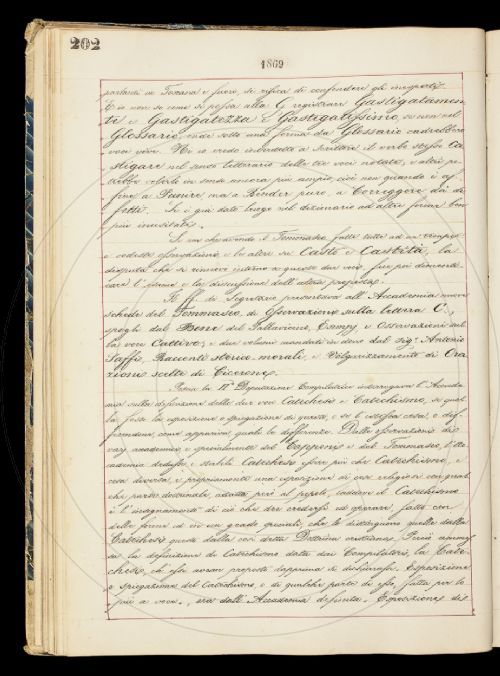 202
1869
parlanti in Toscana e fuori, si rifica di confondere gli inesperti.
E io non so come si possa alla G registrare Gastigatamen-
te e Gastigatezza e Gastigatissimo, se non nel
Glossario, onde sotto una forma da Glossario cadrebbero
voci vive. Nè io credo interdetto a Scrittori il verbo stesso Ca-
stigare nel senso letterario delle tre voci notate, e altri po-
trebbe volerlo in senso ancora più ampio, cioè non quando è af-
fine a Punire ma a Render puro, a Correggere dai di-
fetti. Si è già dato luogo nel dizionario ad altre forme ben
più inusitate.
Si era che avendo il Tommaseo fatte tutte ad un tempo
e codeste osservazioni e le altre su Casto e Castità, la
disputa che si rinnovò intorno a queste due voci, fece poi dimenti-
care l'esame e la discussione dell'altra proposta.
Il ff. di Segretario presentava all'Accademia nuove
schede del Tommaseo, di Osservazioni sulla lettera C,
spogli del Bene del Pallavicino, Esempj e Osservazioni sul-
la voce Cattivo; e due volumi mandati in dono dal sig.r Antonio
Saffi, Racconti storico morali, e Volgarizzamento di Ora-
zioni scelte di Cicerone.
Poscia la IIª Deputazione Compilatrice interrogava l'Accade-
mia sulla definizione delle due voci Catechesi e Catechismo, se quel-
la fosse la esposizione o spiegazione di questo, o se la stessa cosa, o dif-
ferendone, come appariva, quali le differenze. Dalle osservazioni dei
varj accademici e specialmente del Capponi e del Tommaseo, l'Ac-
cademia dedusse e stabilì Catechesi essere più che Catechismo, e
cosa diversa, e propriamente una esposizione di cose religiose con qual-
che parte dottrinale adatta però al popolo, laddove il Catechismo
è l'insegnamento di ciò che dee credersi ed operarsi, fatto con
delle forme ed in un grado speciali, che lo distinguono quello dalla
Catechesi questo dalla così detta Dottrina cristiana. Perciò ammes-
sa la definizione di Catechismo data dai Compilatori, la Cate-
chesi, che essi avean proposto dapprima di dichiarare Esposizione
o spiegazione del Catechismo o di qualche parte di esso, fatta per lo
più a voce, era dall'Accademia definita. Esposizione di